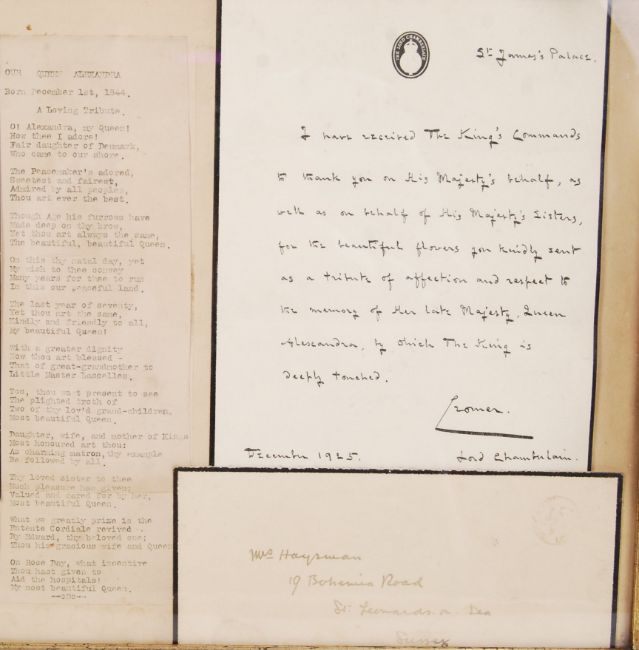 OUR QUEEN ALEXANDRA
Born December 1st, 1844.
A Loving Tribute.
O! Alexandra, my Queen!
How thee I adore!
Fair daughter of Denmark,
Who came to our shore.
The Peacemaker's adored,
Sweetest and fairest,
Admired by all peoples,
Thou art ever the best.
Though Age his furrows have
Made deep on thy brow,
Yet thou art always the same,
The beautiful, beautiful Queen.
On this thy natal day, yet
My wish to thee convey
Many years for thee to run
In this our peaceful land.
The last year of seventy,
Yet thou art the same,
Kindly and friendly to all,
My beautiful Queen!
With a greater dignity
Now thou art blessed -
That of great-grandmother to
Little Master Lascelles.
Too, thou wast present to see
The plighted troth of
Two of thy lov'd grand-children,
Most beautiful Queen.
Daughter, wife, and mother of Kings
Most honoured art thou:
As charming matron, thy example
Be followed by all.
Thy loved sister to thee
Much pleasure has given;
Valued and cared for by her,
Most beautiful Queen.
What we greatly prize is the
Entente Cordiale revived -
By Edward, thy beloved one;
Thou his gracious wife and Queen
On Rose Day, what incentive
Thou hast given to
Aid the hospitals!
My most beautiful Queen.
St. James's Palace.
I have received The King's Commands
to thank you on His Majesty's behalf, as
well as on behalf of His Majesty's Sisters,
for the beautiful flowers you kindly sent
as a tribute of affection and respect to
the memory of Her late Majesty, Queen
Alexandra, by which The King is
deeply touched.
Cromer.
December 1925.
Lord Chamberlain.
Mrs Haysman
19 Bohemia Road
St Leonards-on-Sea
Sussex